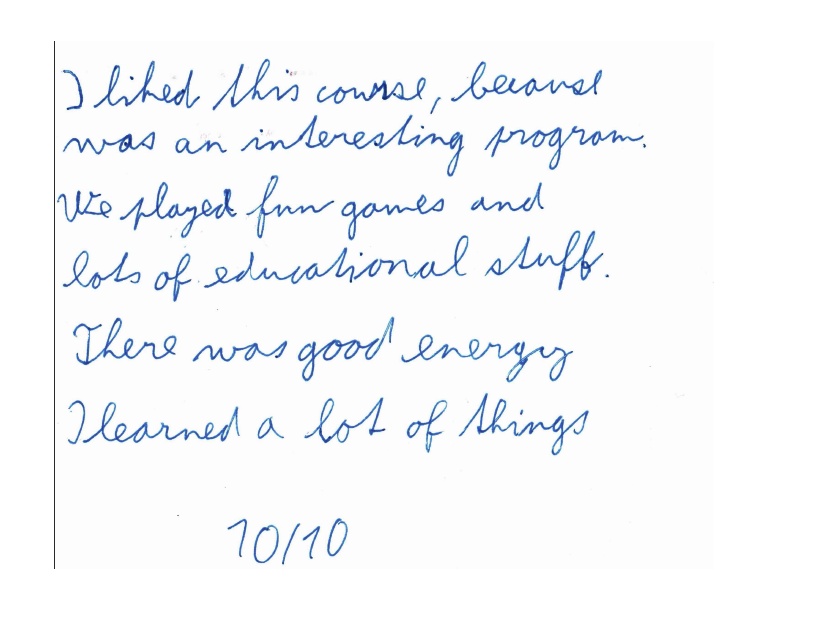 I liked this course, because
was an interesting program.
We played fun games and
lots of educational stuff.
There was good energy
I learned a lot of things
10/10